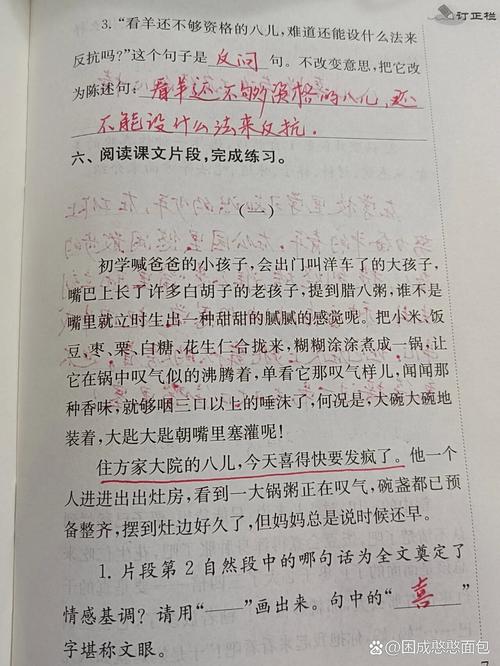 订正栏
3.“看羊还不够资格的八儿，难道还能设什么法来
反抗吗?”这个句子是 反问 句。不改变意思，把它改
为陈述句：看羊还不够资格的八儿，还
不能设什么法来反抗.
六、阅读课文片段，完成练习。
(一)
初学喊爸爸的小孩子，会出门叫洋车了的大孩子，
嘴巴上长了许多白胡子的老孩子，提到腊八粥，谁不是
嘴里就立时生出一种甜甜的腻腻的感觉呢。把小米、饭
豆、枣、栗、白糖、花生仁合拢来，糊糊涂涂煮成一锅，让
它在锅中叹气似的沸腾着，单看它那叹气样儿，闻闻那
种香味，就够咽三口以上的唾沫了，何况是，大碗大碗地
装着，大匙大匙朝嘴里塞灌呢!
住方家大院的八儿，今天喜得快要发疯了。他一个
人进进出出灶房，看到一大锅粥正在叹气，碗盏都已预
备整齐，摆到灶边好久了，但妈妈总是说时候还早。
1. 片段第 2 自然段中的哪句话为全文奠定了
情感基调? 请用“——”画出来。句中的“ 喜 ”
字堪称文眼。
@困成憨憨面包